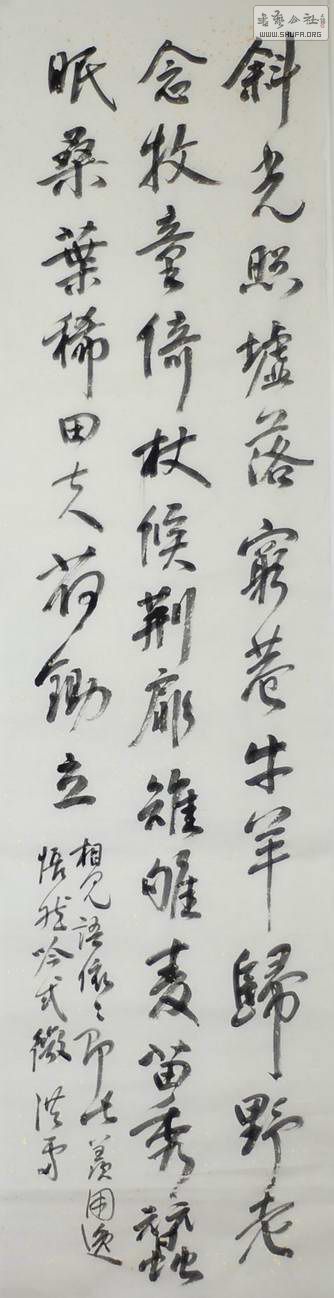 斜光照墟落窮巷牛羊歸野老
念牧童倚杖候荊扉雉雊麥苗秀蠶
眠桑葉稀田夫荷鋤立
相見語依々即此羨閒逸
悵然吟式微
書藝公社
WWW.SHUFA.ORG